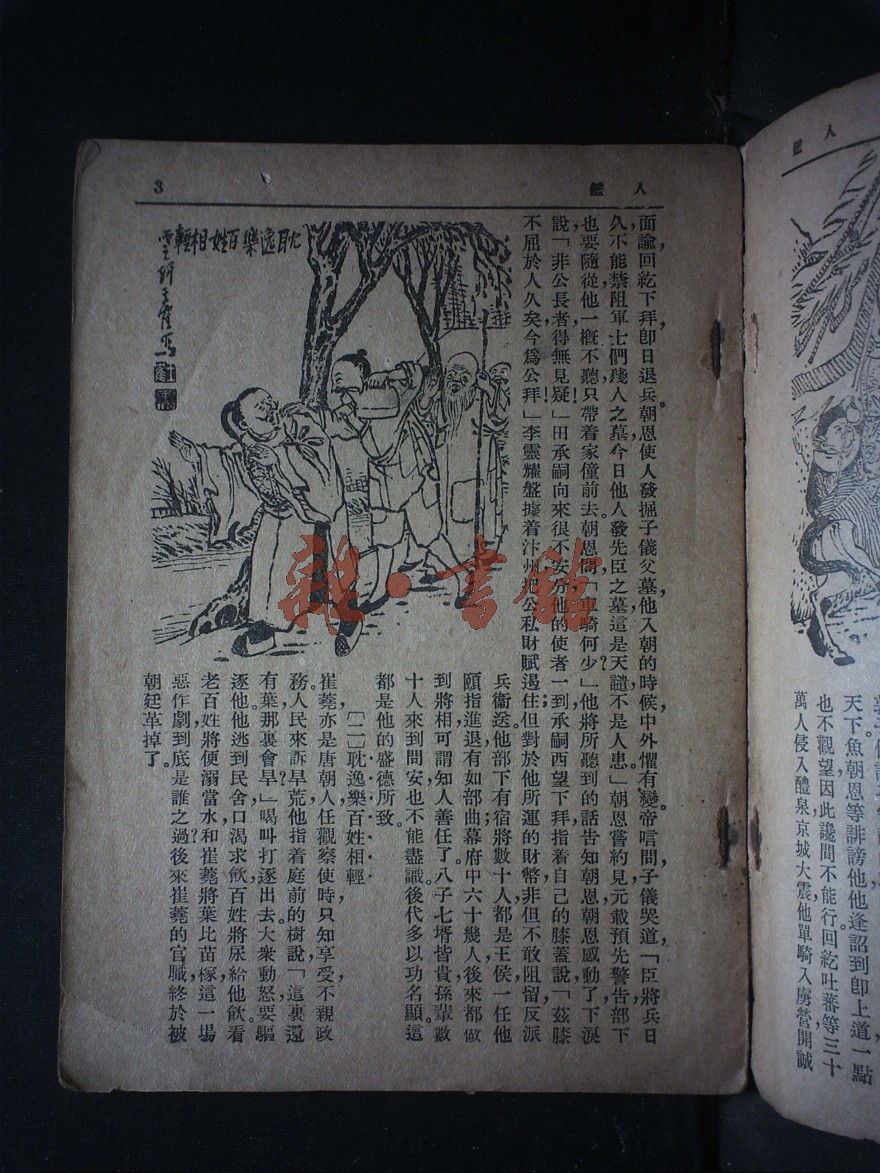 人鑑
3
面諭回紇下拜卽日退兵朝恩使人發掘子儀父墓他入朝的時候中外懼有變帝唁問子儀哭道「臣將兵日
久不能禁阻軍士們踐人之墓今日他人發先臣之墓這是天譴不是人患」朝恩嘗約見元載預先警告部下
也要隨從他一槪不聽只帶着家僮前去朝恩問「車騎何少」他將所聽到的話告知朝恩朝恩感動了下淚
說「非公長者得無見疑！」田承嗣向來很不安分他的使者一到承嗣西望下拜指着自己的膝蓋說「茲膝
不屈於人久矣今爲公拜！」李靈耀盤據着汴州把公私財賦遏住但對於他所運的財幣非但不敢阻留反派
兵衞送他部下有宿將數十人都是王侯一任他
頤指進退有如部曲幕府中六十幾人後來都做
到將相可謂知人善任了八子七壻皆貴孫輩數
十人來到問安也不能盡識後代多以功名顯這
都是他的盛德所致。
(二)耽逸樂百姓相輕
崔蕘亦是唐朝人任觀察使時只知享受不親政
務人民來訴旱荒他指着庭前的樹說「這裏還
有葉那裏會旱？」喝叫打逐出去。大衆動怒要驅
逐他他逃到民舍口渴求飲百姓將尿給他飲。看
老百姓將便溺當水和崔蕘將葉比苗稼這一場
惡作劇到底是誰之過？後來崔蕘的官職終於被
朝廷革掉了。
耽逸樂百姓相輕
人鑑
天下魚朝恩等誹謗他他逢詔到卽上道一點
也不觀望因此讒間不能行回紇吐蕃等三十
萬人侵入醴泉京城大震他單騎入虜營開誠
雜·書館